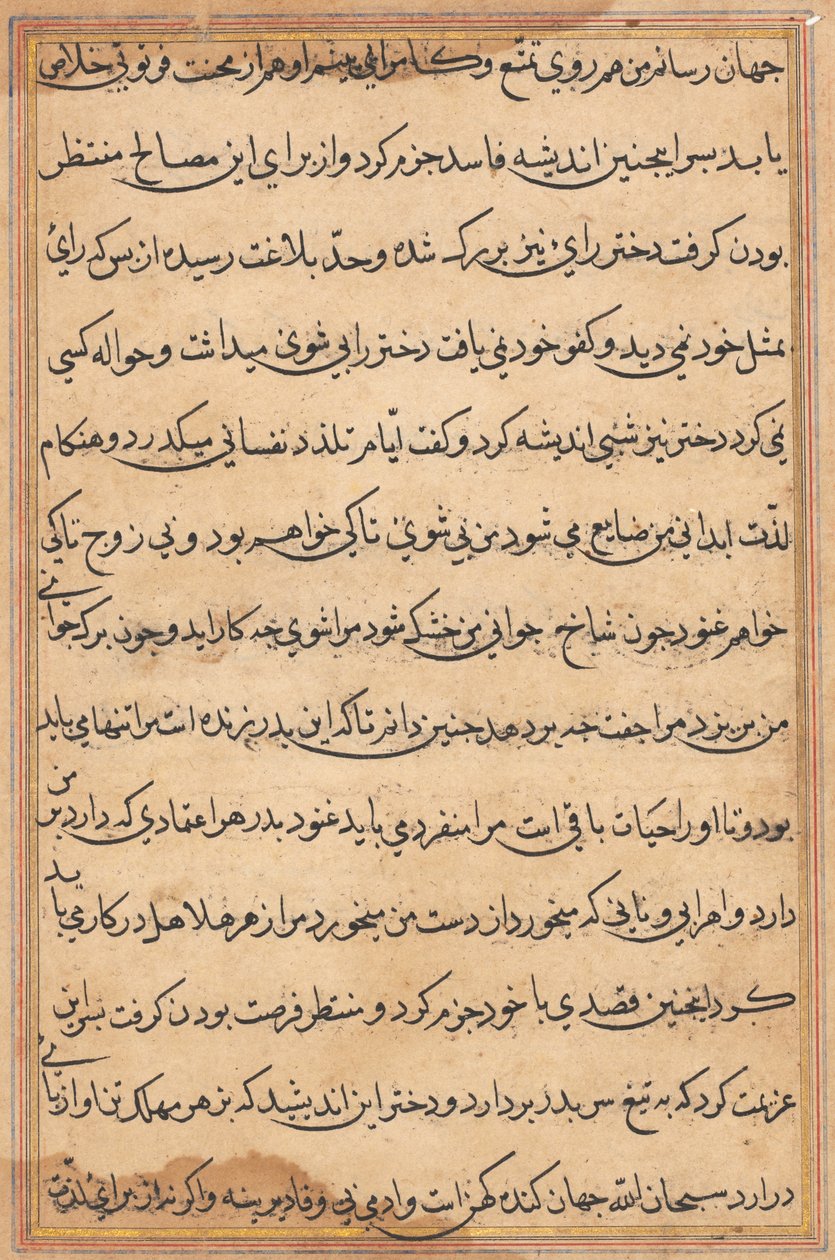 جهان رسانم من هم روي تمتّع و کامراني بينم او هم از محنت فرتوتي خلاص
يابد پسر اينچنين انديشه فاسد جزم کرد و از براي اين مصالح منتظر
بودن کرفت دختر رائ نيز بزرک شده و حدّ بلاغت رسيده از بس که رائ
مثل خود نمي ديد و کفو خود نمي يافت دختر را بي شوي ميداشت و حواله کسي
نمي کرد دختر نيز شبي انديشه کرد و کفت ايّام تلذذ نفساني ميکذرد و هنکام
لذّت ابداني من ضايع مي شود من بي شوي تا کي خواهم بود و بي زوج تا کي
خواهم غنود جون شاخ جواني من خشک شود مرا شوي جه کار ايد و جون برک جواني
من بريزد مرا جفت جه بر دهد جنين دانم تا که اين پدر زنده است مرا تنها مي بايد
بود و تا او را حيات باقي است مرا منفرد مي بايد غنود پدر هر اعتمادي که دارد بر من
دارد و اهر ابي و ناني که ميخورد از دست من ميخورد مرا زهر هلاهل در کار مي بايد
کرد اينجنين قصدي با خود جزم کرد و منتظر فرصت بودن کرفت پسر اين
عزيمت کرد که به تيغ سر پدر بردارد و دختر اين انديشيد که بزهر مهلک تن او از پائے
درارد سبحان الله جهان کنده کهن است و ادمي بي وفا ديرينه و اکر نه از برائ لذّت